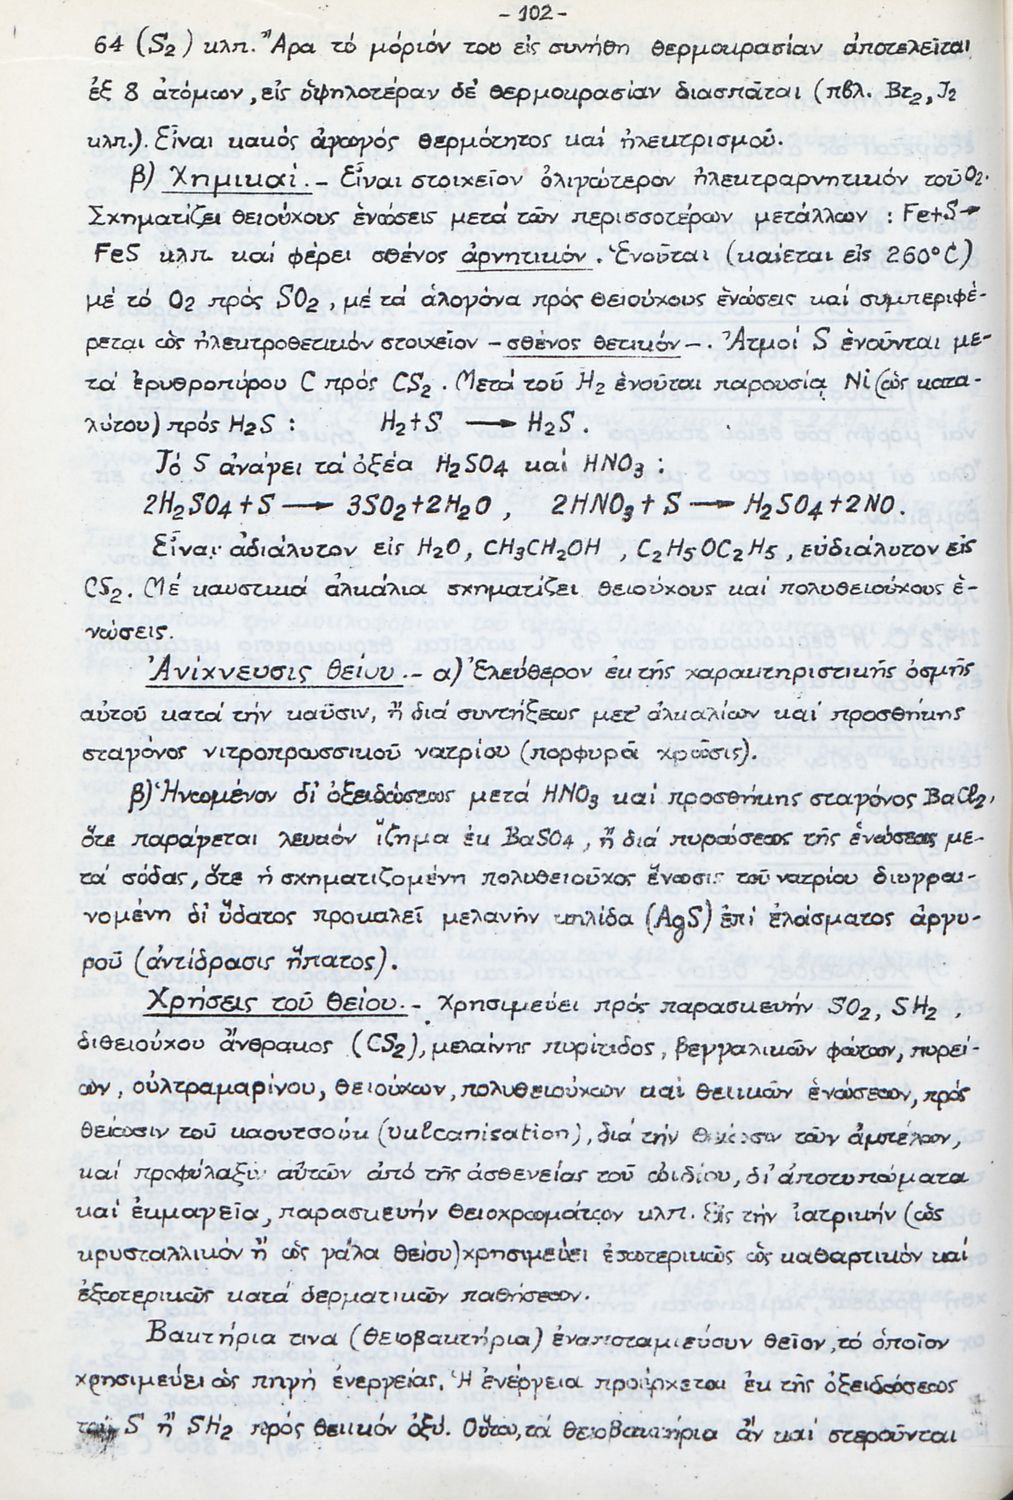 -102-
64 (S₂) κλπ. Ἄρα τό μόριόν του εἰς συνήθη θερμοκρασίαν ἀποτελεῖται
ἐξ 8 ἀτόμων, εἰς ὑψηλοτέραν δέ θερμοκρασίαν διασπᾶται (πβλ. Br₂, J₂
κλπ.). Εἶναι κακός ἀγωγός θερμότητος καί ἠλεκτρισμοῦ.
β) Χημικαί.- Εἶναι στοιχεῖον ὀλιγώτερον ἠλεκτραρνητικόν τοῦ O₂.
Σχηματίζει θειούχους ἑνώσεις μετά τῶν περισσοτέρων μετάλλων : Fe+S→
FeS κλπ. καί φέρει σθένος ἀρνητικόν. Ἑνοῦται (καίεται εἰς 260°C)
μέ τό O₂ πρός SO₂, μέ τά ἁλογόνα πρός θειούχους ἑνώσεις καί συμπεριφέ-
ρεται ὡς ἠλεκτροθετικόν στοιχεῖον – σθένος θετικόν –. Ἀτμοί S ἑνοῦνται με-
τά ἐρυθροπύρου C πρός CS₂. Μετά τοῦ H₂ ἑνοῦται παρουσίᾳ Ni (ὡς κατα-
λύτου) πρός H₂S : H₂+S ⟶ H₂S.
Τό S ἀνάγει τά ὀξέα H₂SO₄ καί HNO₃ :
2H₂SO₄+S ⟶ 3SO₂+2H₂O, 2HNO₃+S ⟶ H₂SO₄+2NO.
Εἶναι ἀδιάλυτον εἰς H₂O, CH₃CH₂OH, C₂H₅OC₂H₅, εὐδιάλυτον εἰς
CS₂. Μέ καυστικά ἀλκάλια σχηματίζει θειούχους καί πολυθειούχους ἑ-
νώσεις.
Ἀνίχνευσις θείου.- α) Ἐλεύθερον ἐκ τῆς χαρακτηριστικῆς ὀσμῆς
αὐτοῦ κατά τήν καῦσιν, ἤ διά συντήξεως μετ' ἀλκαλίων καί προσθήκης
σταγόνος νιτροπρωσσικοῦ νατρίου (πορφυρᾶ χρῶσις).
β) Ἡνωμένον δι' ὀξειδώσεως μετά HNO₃ καί προσθήκης σταγόνος BaCl₂,
ὅτε παράγεται λευκόν ἵζημα ἐκ BaSO₄, ἤ διά πυρώσεως τῆς ἑνώσεως με-
τά σόδας, ὅτε ἡ σχηματιζομένη πολυθειοῦχος ἕνωσις τοῦ νατρίου διυγραι-
νομένη δι' ὕδατος προκαλεῖ μελανήν κηλίδα (AgS) ἐπί ἐλάσματος ἀργύ-
ροῦ (ἀντίδρασις ἥπατος).
Χρήσεις τοῦ θείου.- Χρησιμεύει πρός παρασκευήν SO₂, SH₂,
διθειούχου ἄνθρακος (CS₂), μελαίνης πυρίτιδος, βεγγαλικῶν φώτων, πυρεί-
ων, οὐλτραμαρίνου, θειούχων, πολυθειούχων καί θειικῶν ἑνώσεων, πρός
θείωσιν τοῦ καουτσούκ (vulcanisation), διά τήν θείωσιν τῶν ἀμπέλων,
καί προφύλαξιν αὐτῶν ἀπό τῆς ἀσθενείας τοῦ ὠιδίου, δι' ἀποτυπώματα
καί ἐκμαγεῖα, παρασκευήν θειοχρωμάτων κλπ. Εἰς τήν ἰατρικήν (ὡς
κρυσταλλικόν ἤ ὡς γάλα θείου) χρησιμεύει ἐσωτερικῶς ὡς καθαρτικόν καί
ἐξωτερικῶς κατά δερματικῶν παθήσεων.
Βακτήρια τινα (θειοβακτήρια) ἐναποταμιεύουν θεῖον, τό ὁποῖον
χρησιμεύει ὡς πηγή ἐνεργείας. Ἡ ἐνέργεια προέρχεται ἐκ τῆς ὀξειδώσεως
τοῦ S ἤ SH₂ πρός θειικόν ὀξύ. Οὕτω, τά θειοβακτήρια ἄν καί στεροῦνται